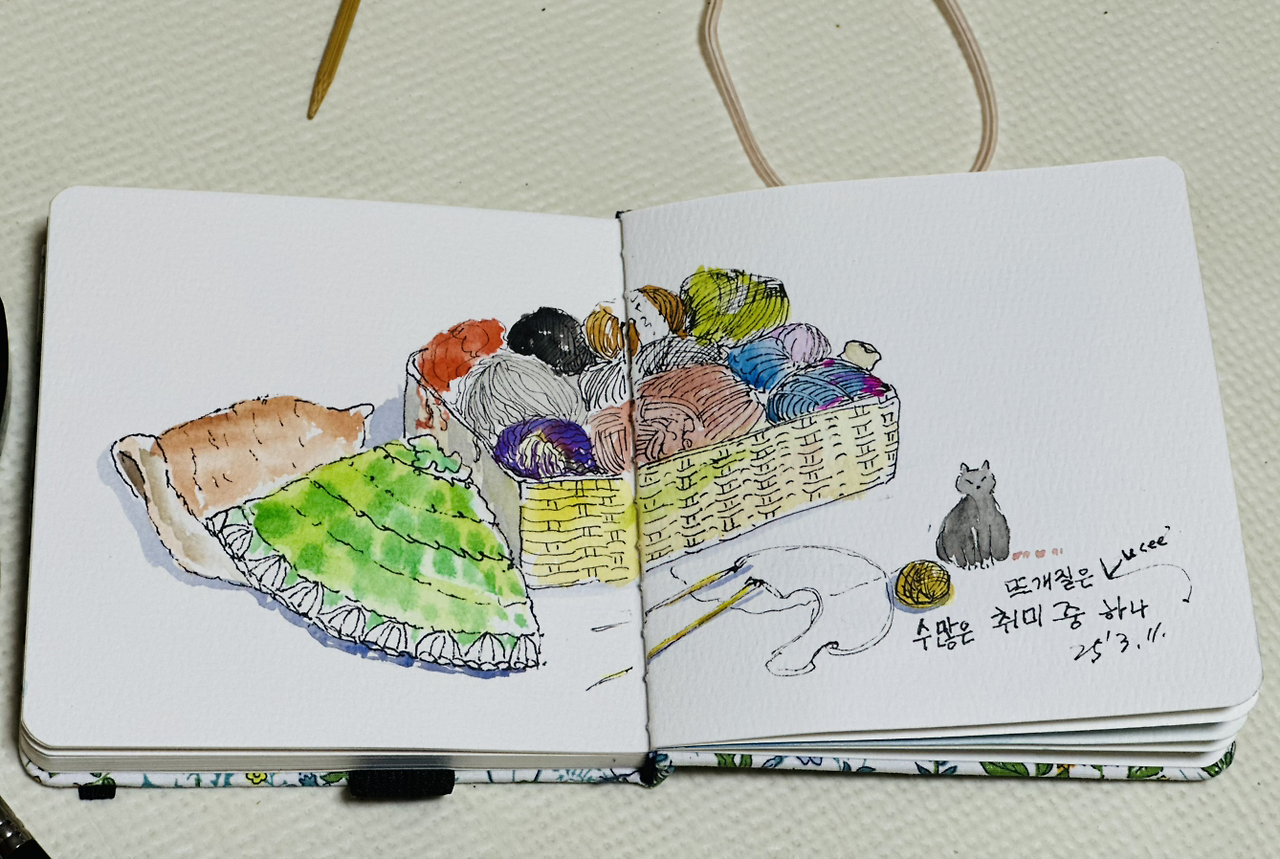 뜨개질은
수많은 취미 중 하나
25. 3. 11.